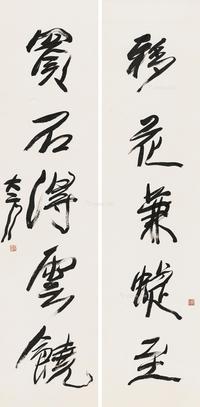 移花兼蜨至
買石得雲饒
大千